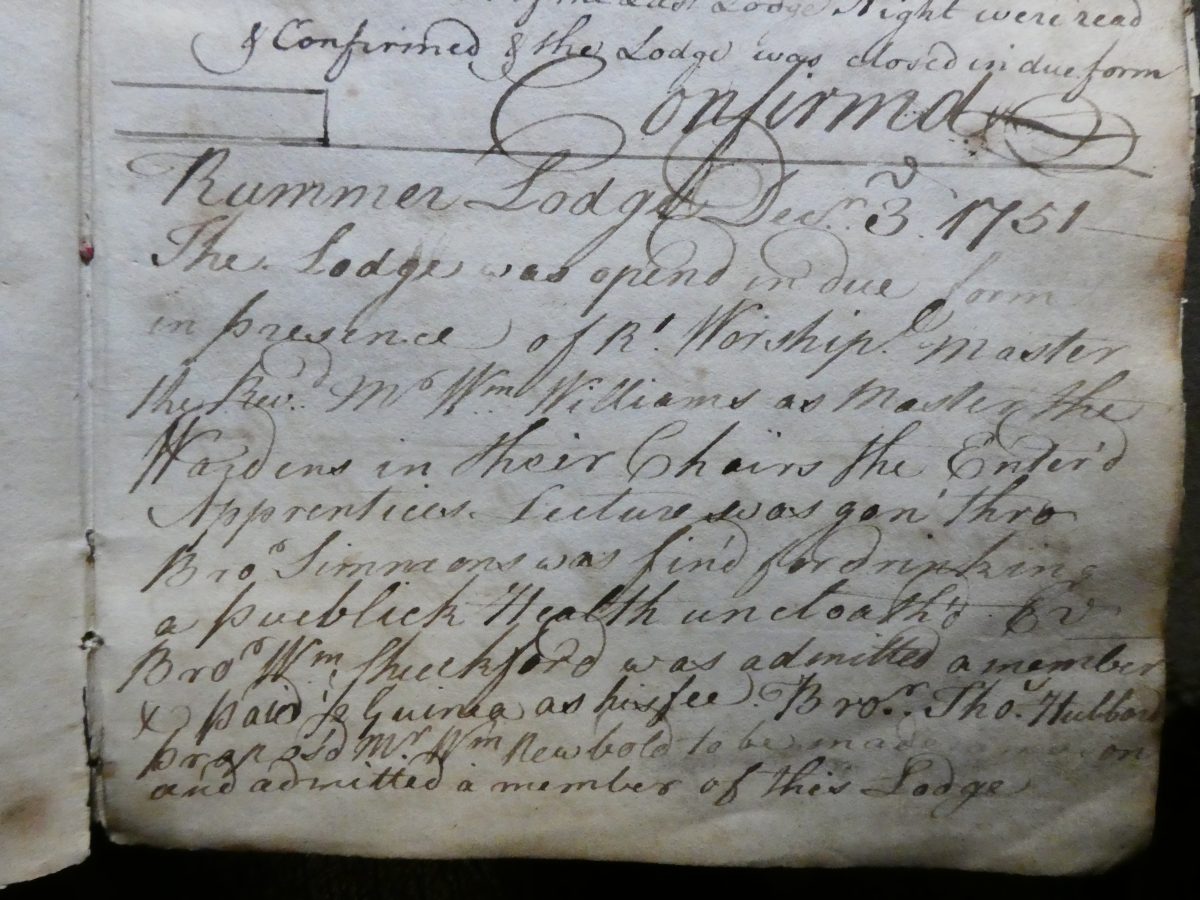 of the Last Lodge Night were read
& Confirmed & the Lodge was closed in due form
Confirmd
Rummer Lodge Decr. 3d. 1751
The Lodge was opend in due form
in presence of Rt. Worshipl. Master
the Revd. Mr Wm Williams as Master the
Wardens in their Chairs the Enter'd
Apprentices Lecture was gon' thro
Bro Simmons was fin'd for drinking
a pueblick Health uncloath'd
Bro Wm Shuckford was admitted a member
& paid Guinea as his fee. Bror. Thos. Hubbard
propos'd Mr. Wm Newbold to be made a mason
and admitted a member of this Lodge